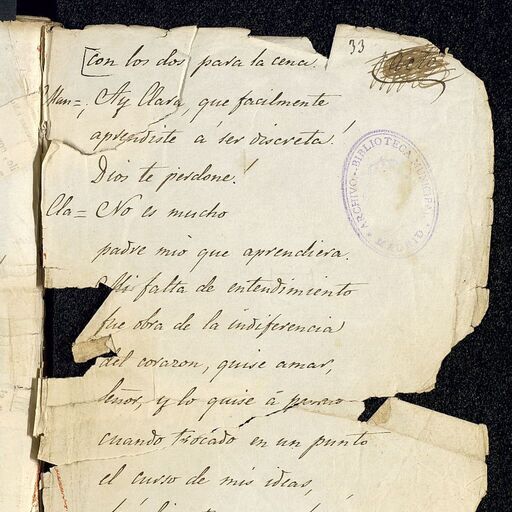 33
con los dos para la cena.
Man=¡Ay Clara, que facilmente
aprendiste á ser discreta!
Dios te perdone!
Cla= No es mucho
padre mio que aprendiera.
Mi falta de entendimiento
fue obra de la indiferencia
del corazon, quise amar,
señor, y lo quise á
cuando trocado en un punto
el curso de mis ideas,
ARCHIVO-BIBLIOTECA MUNICIPAL
MADRID